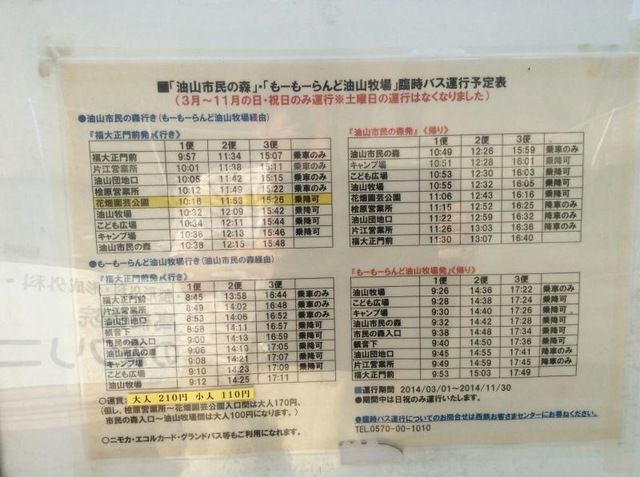 ■「油山市民の森」・「もーもーらんど油山牧場」臨時バス運行予定表
（3月～11月の日・祝日のみ運行※土曜日の運行はなくなりました）
●油山市民の森行き（もーもーらんど油山牧場経由）
『福大正門前発』《行き》
1便 2便 3便
福大正門前 9:57 11:34 15:07 乗車のみ
片江営業所 10:01 11:38 15:11 乗車のみ
油山団地口 10:05 11:42 15:15 乗車のみ
桧原営業所 10:12 11:49 15:22 乗車のみ
花畑園芸公園 10:16 11:53 15:26 乗降可
油山牧場 10:32 12:09 15:42 乗降可
こども広場 10:34 12:11 15:44 乗降可
キャンプ場 10:36 12:13 15:46 乗降可
油山市民の森 10:38 12:15 15:48
『油山市民の森発』《帰り》
1便 2便 3便
油山市民の森 10:49 12:26 15:59 乗車のみ
キャンプ場 10:51 12:28 16:01 乗降可
こども広場 10:53 12:30 16:03 乗降可
油山牧場 10:55 12:32 16:05 乗降可
花畑園芸公園 11:06 12:43 16:16 乗降可
桧原営業所 11:12 12:49 16:25 降車のみ
油山団地口 11:22 12:59 16:32 降車のみ
片江営業所 11:26 13:03 16:36 降車のみ
福大正門前 11:30 13:07 16:40
●もーもーらんど油山牧場行き（油山市民の森経由）
『福大正門前発』《行き》
1便 2便 3便
福大正門前 8:45 13:58 16:44 乗車のみ
片江営業所 8:49 14:02 16:48 乗車のみ
油山団地口 8:53 14:06 16:52 乗車のみ
観音下 8:58 14:11 16:57 乗降可
市民の森入口 9:00 14:13 16:59 乗降可
油山市民の森 9:06 14:19 17:05 乗降可
キャンプ場 9:08 14:21 17:07 乗降可
こども広場 9:10 14:23 17:09 乗降可
油山牧場 9:12 14:25 17:11
『もーもーらんど油山牧場発』《帰り》
1便 2便 3便
油山牧場 9:26 14:36 17:22 乗車のみ
こども広場 9:28 14:38 17:24 乗降可
キャンプ場 9:30 14:40 17:26 乗降可
油山市民の森 9:32 14:42 17:28 乗降可
市民の森入口 9:38 14:48 17:34 乗降可
観音下 9:40 14:50 17:36 乗降可
油山団地口 9:45 14:55 17:41 降車のみ
片江営業所 9:49 14:59 17:45 降車のみ
福大正門前 9:53 15:03 17:49
○運賃：大人 210円 小人 110円
（但し、桧原営業所～花畑園芸公園入口間は大人170円、
市民の森入口～油山牧場間は大人100円になります。）
○ニモカ・エコルカード・グランドパス等もご利用になれます。
■運行期間 2014/03/01～2014/11/30
●期間中は日祝のみ運行いたします。
●臨時バス運行についてのお問合せは西鉄お客さまセンターにお尋ねください。
TEL.0570-00-1010